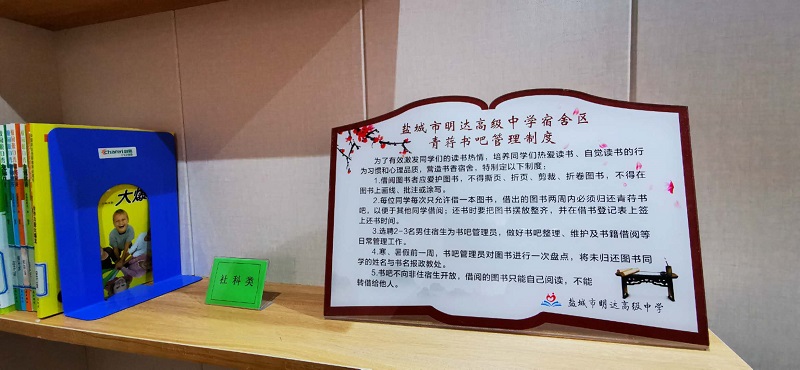 盐城市明达高级中学宿舍区
青荇书吧管理制度
为了有效激发同学们的读书热情，培养同学们热爱读书、自觉读书的行
为习惯和心理品质，营造书香宿舍，特制定以下制度：
1.借阅图书者应爱护图书，不得撕页、折页、剪裁、折卷图书，不得在
图书上画线、批注或涂写。
2.每位同学每次只允许借一本图书，借出的图书两周内必须归还青荇书
吧，以便于其他同学借阅；还书时要把图书摆放整齐，并在借书登记表上签
上还书时间。
3.选聘2-3名男住宿生为书吧管理员，做好书吧整理、维护及书籍借阅等
日常管理工作。
4.寒、暑假前一周，书吧管理员对图书进行一次盘点，将未归还图书同
学的姓名与书名报政教处。
5.书吧不向非住宿生开放，借阅的图书只能自己阅读，不能
转借给他人。
盐城市明达高级中学
社科类